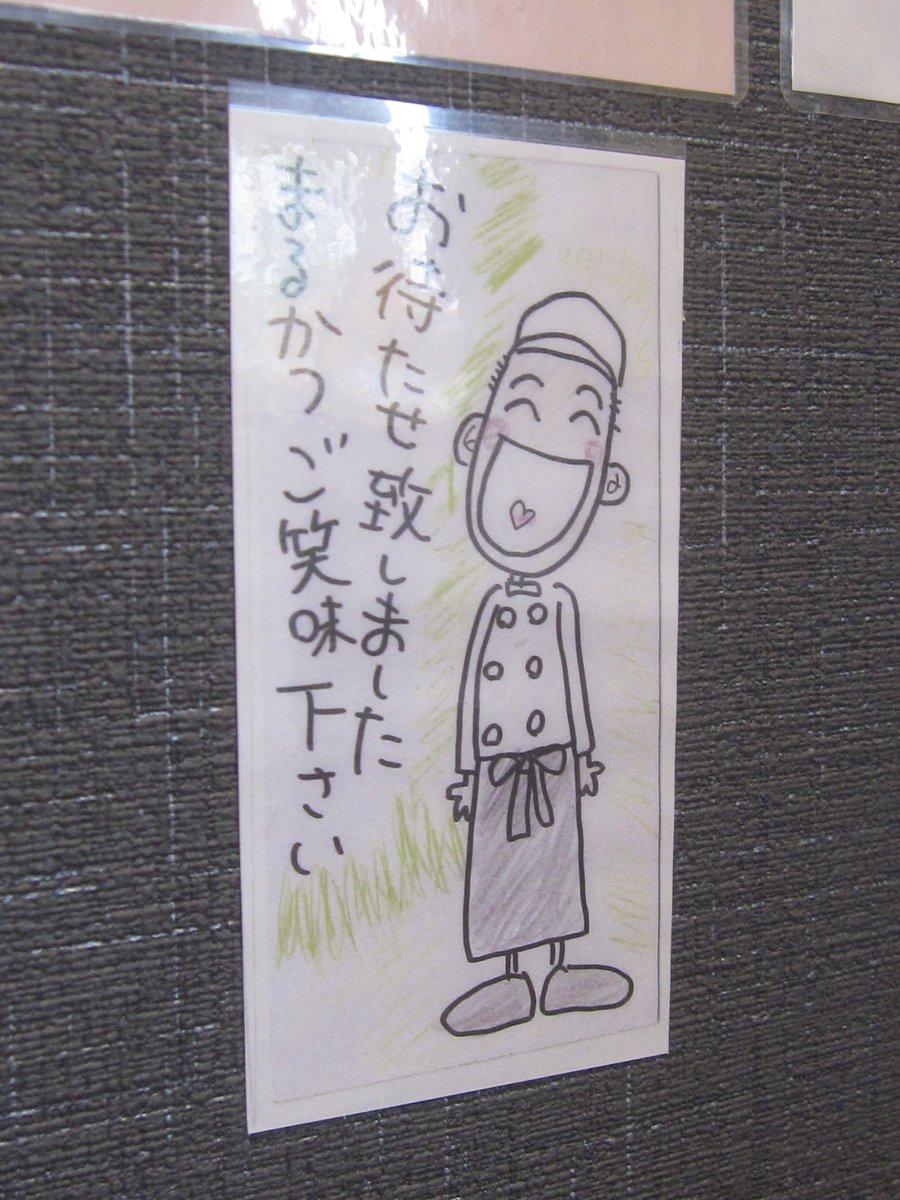 お待たせ致しました
まるかつご笑味下さい